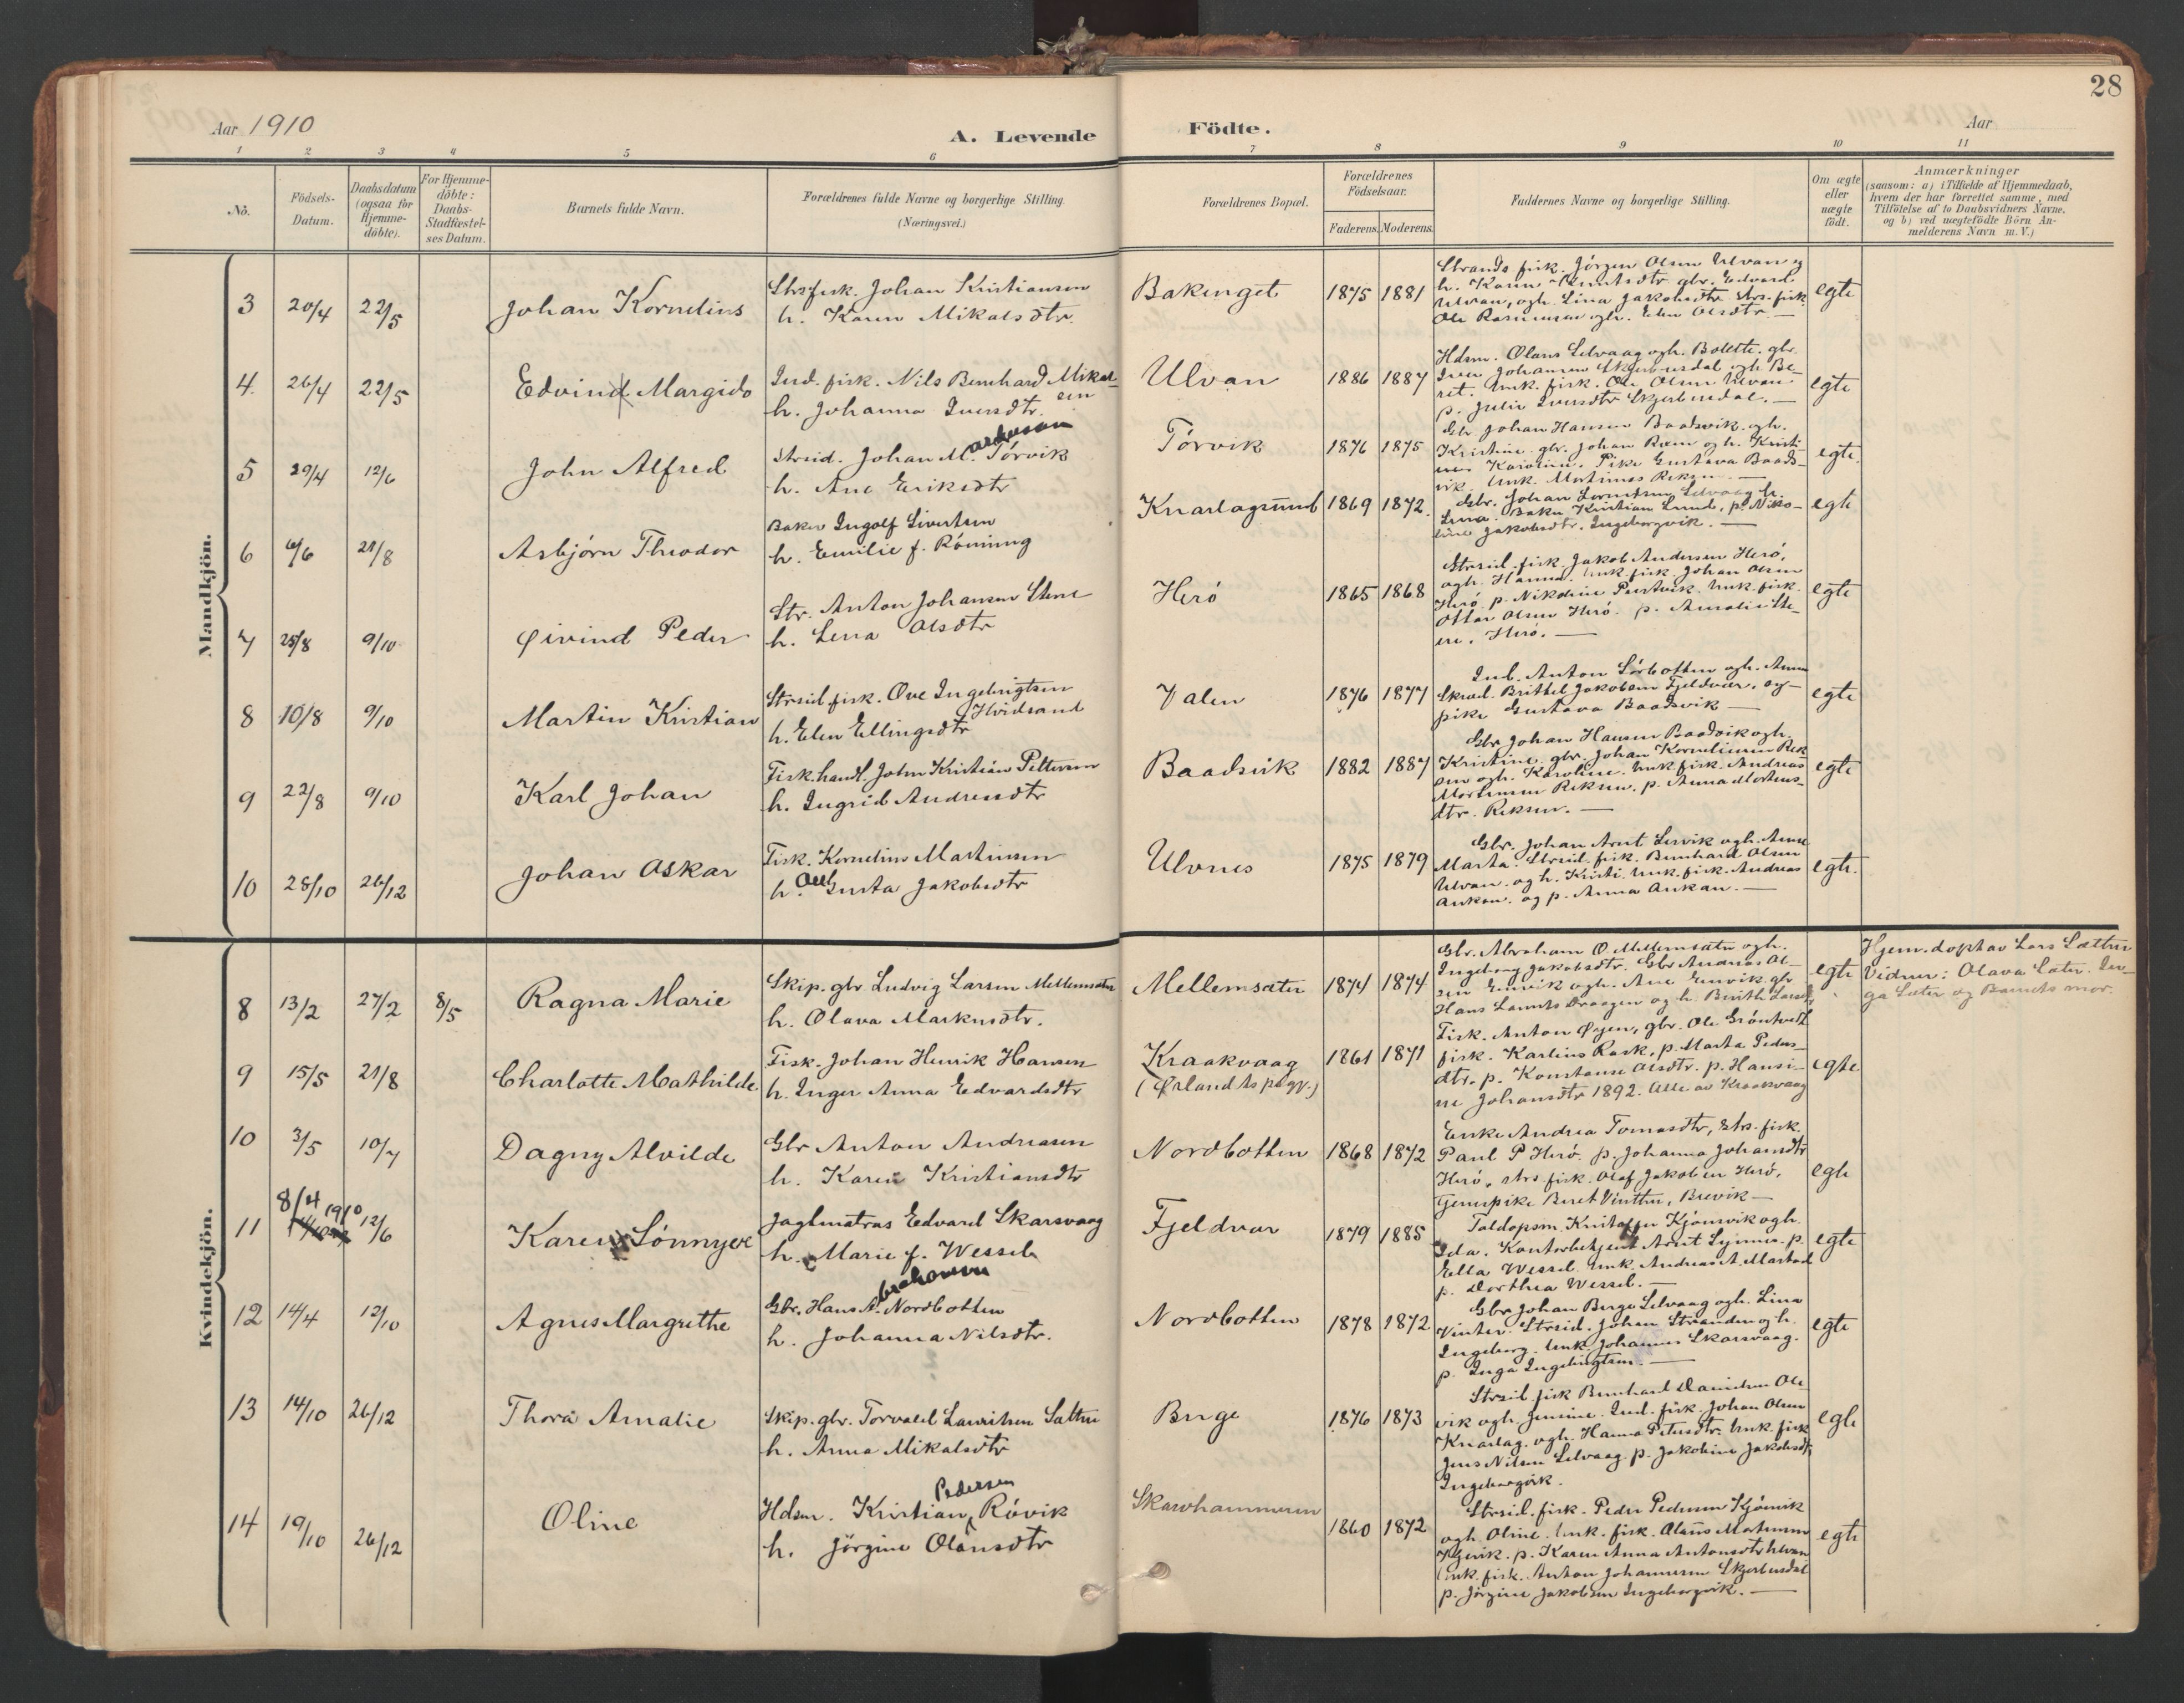 28
Aar 1910
A. Levende Födte.
Aar
1 2 3 4 5 6 7 8 9 10 11
No.
Födsels-
Datum.
Daabsdatum
(ogsaa for
Hjemme-
döbte).
For Hjemme-
döbte:
Daabs-
Stadfæstel-
ses Datum.
Barnets fulde Navn.
Forældrenes fulde Navne og borgerlige Stilling.
(Næringsvei.)
Forældrenes Bopæl.
Forældrenes
Födselsaar.
Faderens. Moderens.
Faddernes Navne og borgerlige Stilling.
Om ægte
eller
uægte
födt.
Anmærkninger
(saasom: a) i Tilfælde af Hjemmedaab,
hvem der har forrettet samme, med
Tilföielse af to Daabsvidners Navne,
og b) ved uægtefödte Börn An-
melderens Navn m. V.)
Mandkjön.
3 20/4 22/5 Johan Kornelius
Strsfisk. Johan Kristiansen
h. Karen Mikalsdtr.
Bakenget 1875 1881
Strands fisk. Jörgen Olsen Ulvan og
h. Karen gbr. Edvard
Ulvan, og h. Lina Jakobsdtr. Strs. fisk.
Ole Rasmussen og h. Elen Olsdtr. —
egte
4 26/4 22/5 Edvind Margido
Ind. fisk. Nils Bernhard Mikal-
sen
h. Johanna Iversdtr.
Ulvan 1886 1887
Hdsm. Olaus Selvaag og h. Bolette. gbr.
Iver Johansen Skjerbusdal og h. Be-
ret. Unk. fisk. Ole Olsen Ulvan
p. Julie Iversdtr Skjerbusdal. —
egte
5 29/4 12/6 John Alfred
Strsid. Johan M. arkussen Törvik
h. Ane Eriksdtr
Törvik 1876 1875
Gbr. Johan Hansen Baadsvik og h.
Kristine. gbr. Johan og h. Kristi
Pike Gustava Baads-
vik. Unk. Martinus Reksen. —
egte.
6 6/6 21/8 Asbjörn Theodor
Baker Ingolf Sivertsen
h. Emilie f. Rönning
Knarlagsund 1869 1872
Gbr. Johan Selvaag h.
Lina. Baker Kristian Lund, p. Niko-
line Jakobsdtr. Ingeborgvik. —
egte
7 25/8 9/10 Øivind Peder
Str. Anton Johansen Stene
h. Lena Olsdtr
Herö 1865 1868
Strsid. fisk. Jakob Andersen Herö,
og h. Hanna. Unk. fisk. Johan Olsen
Herö. p. Nikoline Unk. fisk.
Ottar Olsen Herö. p. Amalie Ste-
ne. Herö. —
egte
8 10/8 9/10 Martin Kristian
Strsid. fisk. Ove Ingebrigtsen
Hvidsand
h. Elen Ellingsdtr
Valen 1876 1877
Ind. Anton Sörbotten og h. Anna
Skræd. Brithel Jakobsen Fjeldvær, og
pike Gustava Baadsvik —
egte
9 22/8 9/10 Karl Johan
Fisk. handl. John Kristian Pettersen
h. Ingrid Andreasdtr
Baadsvik 1882 1887
Gbr. Johan Hansen Baadsvik og h.
Kristine. gbr. Johan Korneliussen Rek
sen og h. Karoline. Unk. fisk. Andreas
Mortensen Reksen. p. Anna Mortens-
dtr. Reksen. —
egte
10 28/10 26/12 Johan Oskar
Fisk. Kornelius Martinsen
h. Augusta Jakobsdtr
Ulvnes 1875 1879
Gbr. Johan Arnt Lervik og h. Anne
Marta. Strsid. fisk. Bernhard Olsen
Ulvan. og h. Kristi. Unk. fisk. Andreas
Ankan. og p. Anna Ankan. —
egte.
Kvindekjön.
8 13/2 27/2 8/5 Ragna Marie
Skip. gbr Ludvig Larsen Mellemsæter
h. Olava Markusdtr.
Mellemsæter 1874 1874
Gbr. Abraham O. Mellemsæter og h.
Ingeborg Jakobsdtr. Gbr Andreas Ol-
sen Envik og h. Ane Envik. gbr
Hans og h. Berith
egte
Hjem. döpt av Lars Sætter
Vidner: Olava Sæter. In-
ga Sæter og Barnets mor.
9 15/5 21/8 Charlotte Mathilde
Fisk. Johan Henrik Hansen
h. Inger Anna Edvardsdtr
Kraakvaag
(Ørlandets pgj.)
1861 1871
Fisk. Anton Øyen, gbr. Ole Gröntvedt
fisk. Karlius Rask, p. Marta Peders-
dtr, p. Konstanse Olsdtr. p. Hansi-
ne Johansdtr 1892. Alle av Kraakvaag
egte
10 3/5 10/7 Dagny Alvilde
Gbr Anton Andreasen
h. Karen Kristiansdtr
Nordbotten 1868 1872
Enke Andrea Tomasdtr, Strs. fisk.
Paul P Herö. p. Johanna Johansdtr
Herö, strs fisk. Olaf Jakobsen Herö,
Tjenepike Beret Vinther, Brevik —
egte
11 8/4 1910 12/6 Karen Sönnyer
Jagtmatros Edvard Skarsvaag
h. Marie f. Wessel
Fjeldvær 1879 1885
Toldopsm. Kristoffer Kjönsvik og h.
Ida. Kontorbetjent Arnt p.
Ella Wessel. Unk. Andreas A. Mastad
p. Dorthea Wessel. —
egte
12 14/4 12/10 Agnes Margrethe
Gbr. Hans A. brahamsen Nordbotten
h. Johanna Nilsdtr.
Nordbotten 1878 1872
Gbr Johan Berge Selvaag og h. Lina
Vinter. Strsid. Johan Stranden og h.
Ingeborg. Unk. Johannes Skarsvaag.
p. Inga Ingebrigtsen. —
egte
13 14/10 26/12 Thora Amalie
Skip. gbr. Torvald Lauritsen Sætter
h. Anna Mikalsdtr
Berge 1876 1873
Strsid. fisk Bernhard Danielsen Ole
vik og h. Jensine. Ind. fisk. Johan Olsen
Knarlag. og h. Hanna Petersdtr. Unk. fisk
Jens Nilsen Selvaag. p. Jakobine Jakobsdtr
Ingeborgvik.
egte
14 19/10 26/12 Oline
Hdsm. Kristian Pedersen Rövik
h. Jörgine Olausdtr
Skarvhammeren 1860 1872
Strsid. fisk. Peder Pedersen Kjönsvik
og h. Oline. Unk. fisk. Olaus Mortensen
p. Karen Anna Antonsdtr Ulvan
Unk. fisk. Anton Johannesen Skjerbusdal
p. Jörgine Jakobsen Ingeborgvik. —
egte